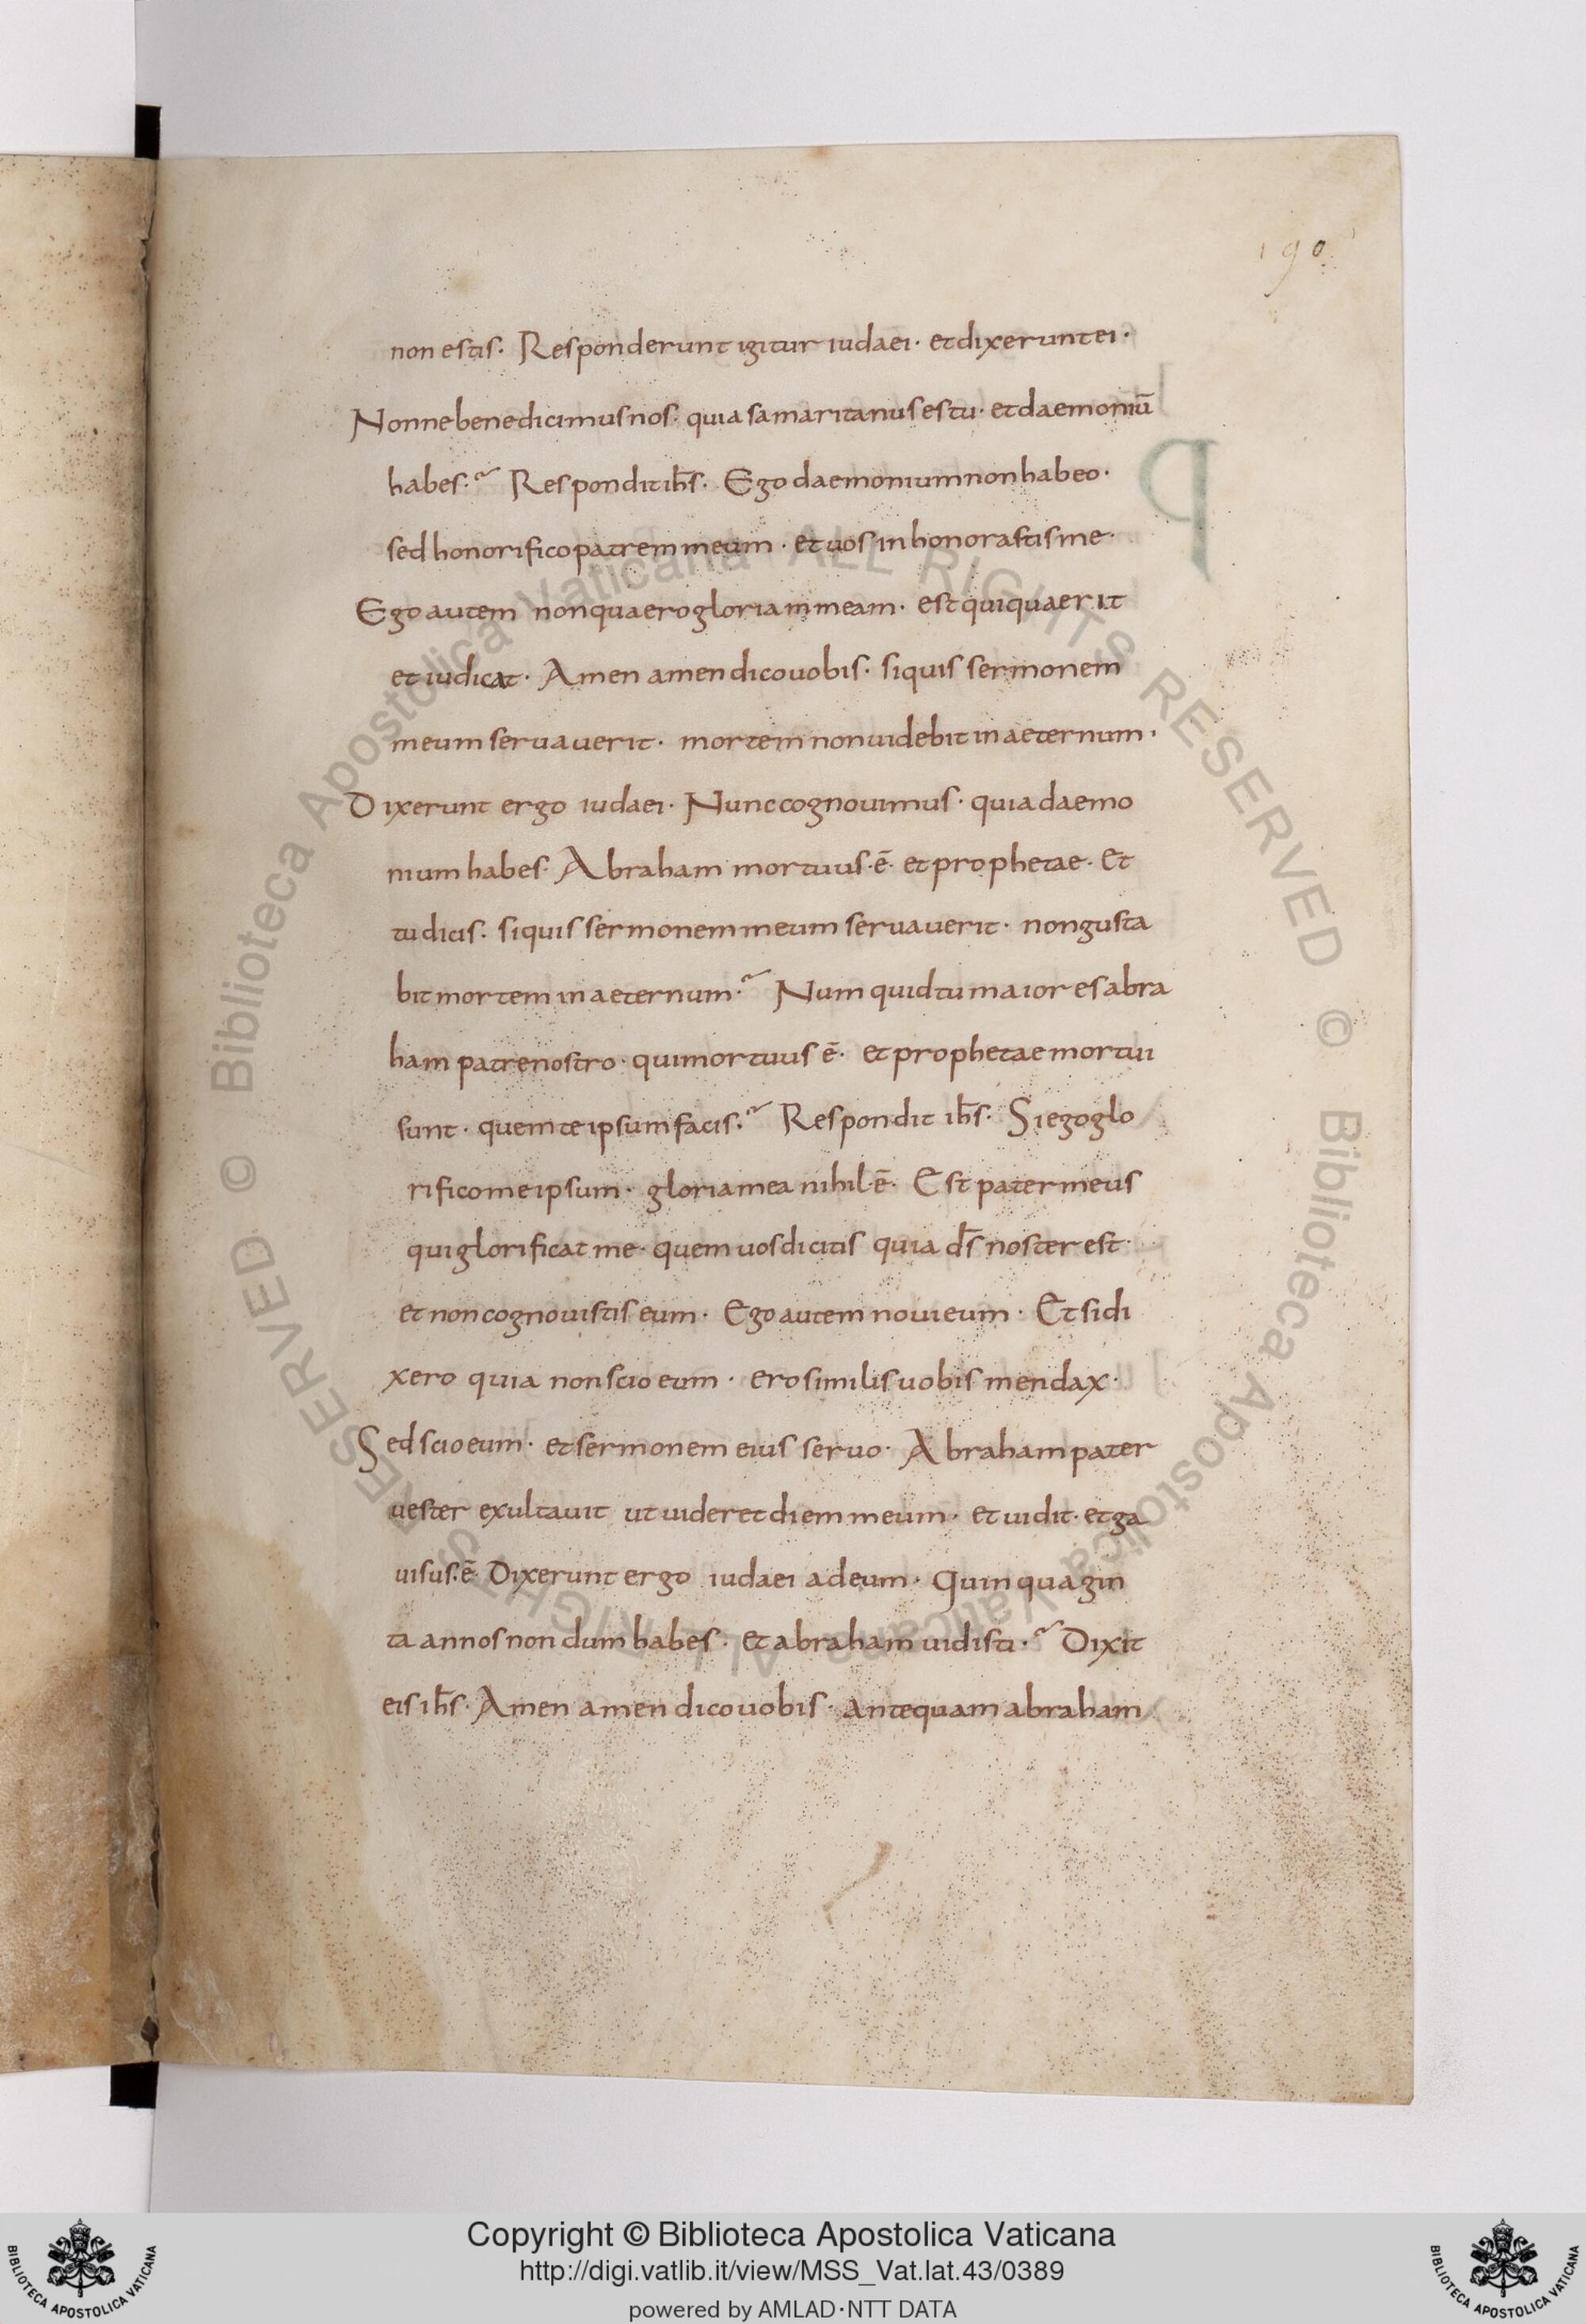 190
non estis· Responderunt igitur iudaei· et dixerunt ei·
Nonne bene dicimus nos· quia samaritanus es tu· et daemoniū
habes·~ Respondit ih̄s· Ego daemonium non habeo·
sed honorifico patrem meum· et uos inhonorastis me·
Ego autem non quaero gloriam meam· est qui quaerit
et iudicat· Amen amen dico uobis· siquis sermonem
meum seruauerit· mortem non uidebit in aeternum·
Dixerunt ergo iudaei· Nunc cognouimus· quia daemo
nium habes· Abraham mortuus·ē· et prophetae· Et
tu dicis· siquis sermonem meum seruauerit· non gusta
bit mortem in aeternum·~ Numquid tu maior es abra
ham patre nostro· qui mortuus ē· et prophetae mortui
sunt· quem te ipsum facis·~ Respondit ih̄s· Si ego glo
rifico me ipsum· gloria mea nihil·ē· Est pater meus
qui glorificat me· quem uos dicitis quia d̄s noster est·
et non cognouistis eum· Ego autem noui eum· Et si di
xero quia non scio eum· ero similis uobis mendax·
Sed scio eum· et sermonem eius seruo· Abraham pater
uester exultauit ut uideret diem meum· et uidit· et ga
uisus·ē· Dixerunt ergo iudaei ad eum· Quinquagin
ta annos nondum habes· et abraham uidisti·~ Dixit
eis ih̄s· Amen amen dico uobis· antequam abraham
© Biblioteca Apostolica Vaticana ALL RIGHTS RESERVED
© Biblioteca Apostolica Vaticana ALL RIGHTS RESERVED
BIBLIOTECA APOSTOLICA VATICANA
Copyright © Biblioteca Apostolica Vaticana
http://digi.vatlib.it/view/MSS_Vat.lat.43/0389
powered by AMLAD·NTT DATA
BIBLIOTECA APOSTOLICA VATICANA